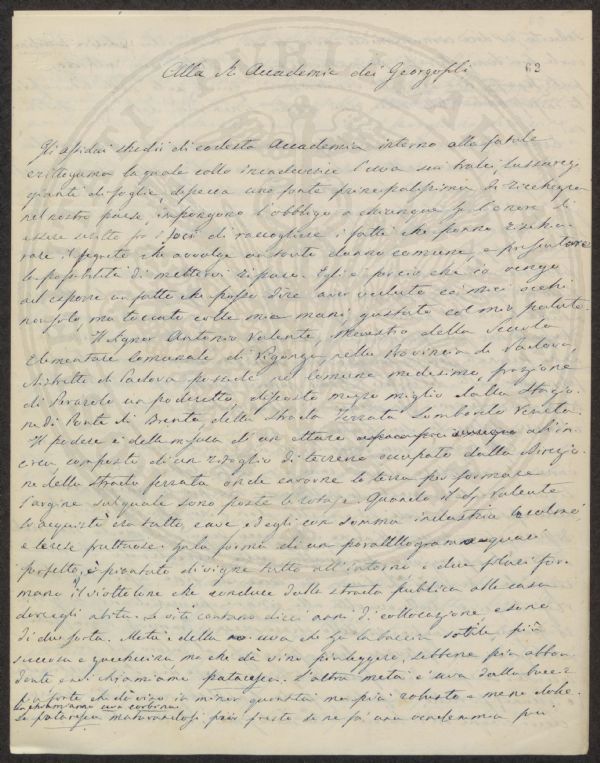 62
Alla R. Accademia dei Georgofili
Gli assidui studii di codesta Accademia intorno alla fatale
crittogama la quale colto incadaverisce l'uva sui tralci, lussureg
gianti di foglie, disecca una fonte principalissima di ricchezza
nel nostro paese, impongono l'obbligo a chiunque ha l'onore di
essere scritto fra i Socj di raccogliere i fatti che ponno rischia
rare il segreto che avvolge un tanto danno comune, e presentare
la possibilità di mettervi riparo. Egli è perciò che io vengo
ad esporre un fatto che posso dire aver veduto co' miei occhi
non solo, ma toccato colle mie mani, gustato col mio palato.
Il Signor Antonio Valente, Maestro della Scuola
Elementare Comunale di Vigonza, nella Provincia di Padova
Distretto di Padova possede nel Comune medesimo, frazione
di Peraro un poderetto, disposto mezzo miglio dalla Stazio
ne di Ponte di Brenta, della Strada Ferrata Lombardo Veneta.
Il podere è della misura di un ettare all'in
circa, composto di un ritaglio di terreno occupato dalla Direzio
ne della strada ferrata onde cavarne la terra per formare
l'argine sul quale sono poste le rotaje. Quando il Sr Valente
lo acquistò era tutto cave ed egli con somma industria lo colmò
e lo rese fruttuoso. Ha la forma di un paralellogramo quasi
perfetto, è piantato di vigne tutto all'intorno e due filari for
mano il viottolone che conduce dalla strada pubblica alla casa
dov'egli abita. Le viti contano dieci anni di collocazione e sono
di due sorta. Metà è della uva che ha la buccia sotile, più
succosa e zuccherina, ma che dà vino più leggero, sebbene più abbon
dante e chiamiamo pataresca. L'altra metà è uva dalla bucc
più forte che dà vino in minor quantità ma più robusto e meno dolce.
la chiamiamo uva corbina.
La pataresca maturandosi più presto se ne fa una vendemmia più